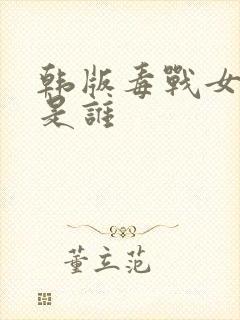 韩版毒戰女
是誰
董立范